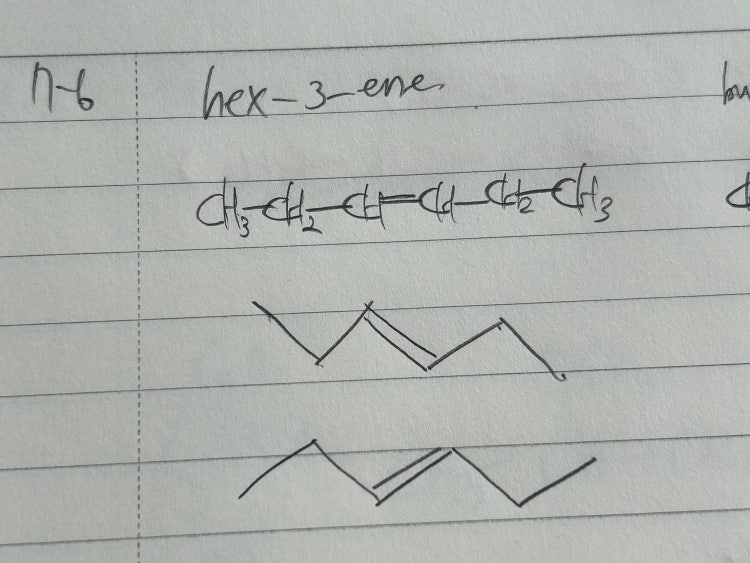 n-6 hex-3-ene
CH3-CH2-CH=CH-CH2-CH3